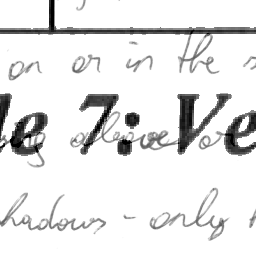 on or in the
le 7: Ve
above or
hadows - only